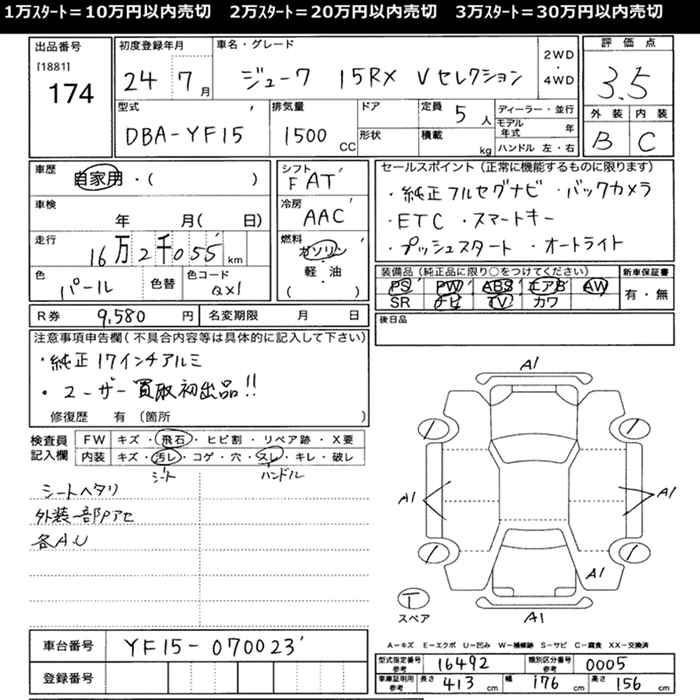 1万ｽﾀｰﾄ＝10万円以内売切　2万ｽﾀｰﾄ＝20万円以内売切　3万ｽﾀｰﾄ＝30万円以内売切
出品番号 [1881] 174
初度登録年月 24 7月
車名・グレード ジューク 15RX Vセレクション
2WD・4WD
評価点 3.5
外装 B 内装 C
型式 DBA-YF15
排気量 1500 CC
ドア 形状
定員 5人
積載 kg
ディーラー・並行
モデル年式 年
ハンドル 左・右
車歴 自家用・( )
シフト FAT
車検 年 月( 日)
冷房 AAC
走行 16万2千055 km
燃料 ガソリン・軽・油 ( )
色 パール 色替 色コード QX1
セールスポイント（正常に機能するものに限ります）
・純正フルセグナビ ・バックカメラ
・ETC ・スマートキー
・プッシュスタート ・オートライト
装備品（純正品に限り○をつけてください） 新車保証書
PS PW ABS エアB AW 有・無
SR ナビ TV カワ
R券 9,580 円 名変期限 月 日
後日品
注意事項申告欄(不具合内容等は具体的に記入して下さい)
・純正17インチアルミ
・ユーザー買取初出品!!
修復歴 有（箇所 ）
検査員記入欄
FW キズ・飛石・ヒビ割・リペア跡・X要
内装 キズ・汚レ・コゲ・穴・スレ・キレ・破レ
シート ハンドル
シートヘタリ
外装一部アセ
各A.U
A1
A1 A1
A1
A1
T
スペア
A-キズ E-エクボ U-凹み W-補修跡 S-サビ C-腐食 XX-交換済
車台番号 YF15-070023
登録番号
型式指定番号参考 16492 類別区分番号参考 0005
車庫証明用参考 長さ 413 cm 幅 176 cm 高さ 156 cm